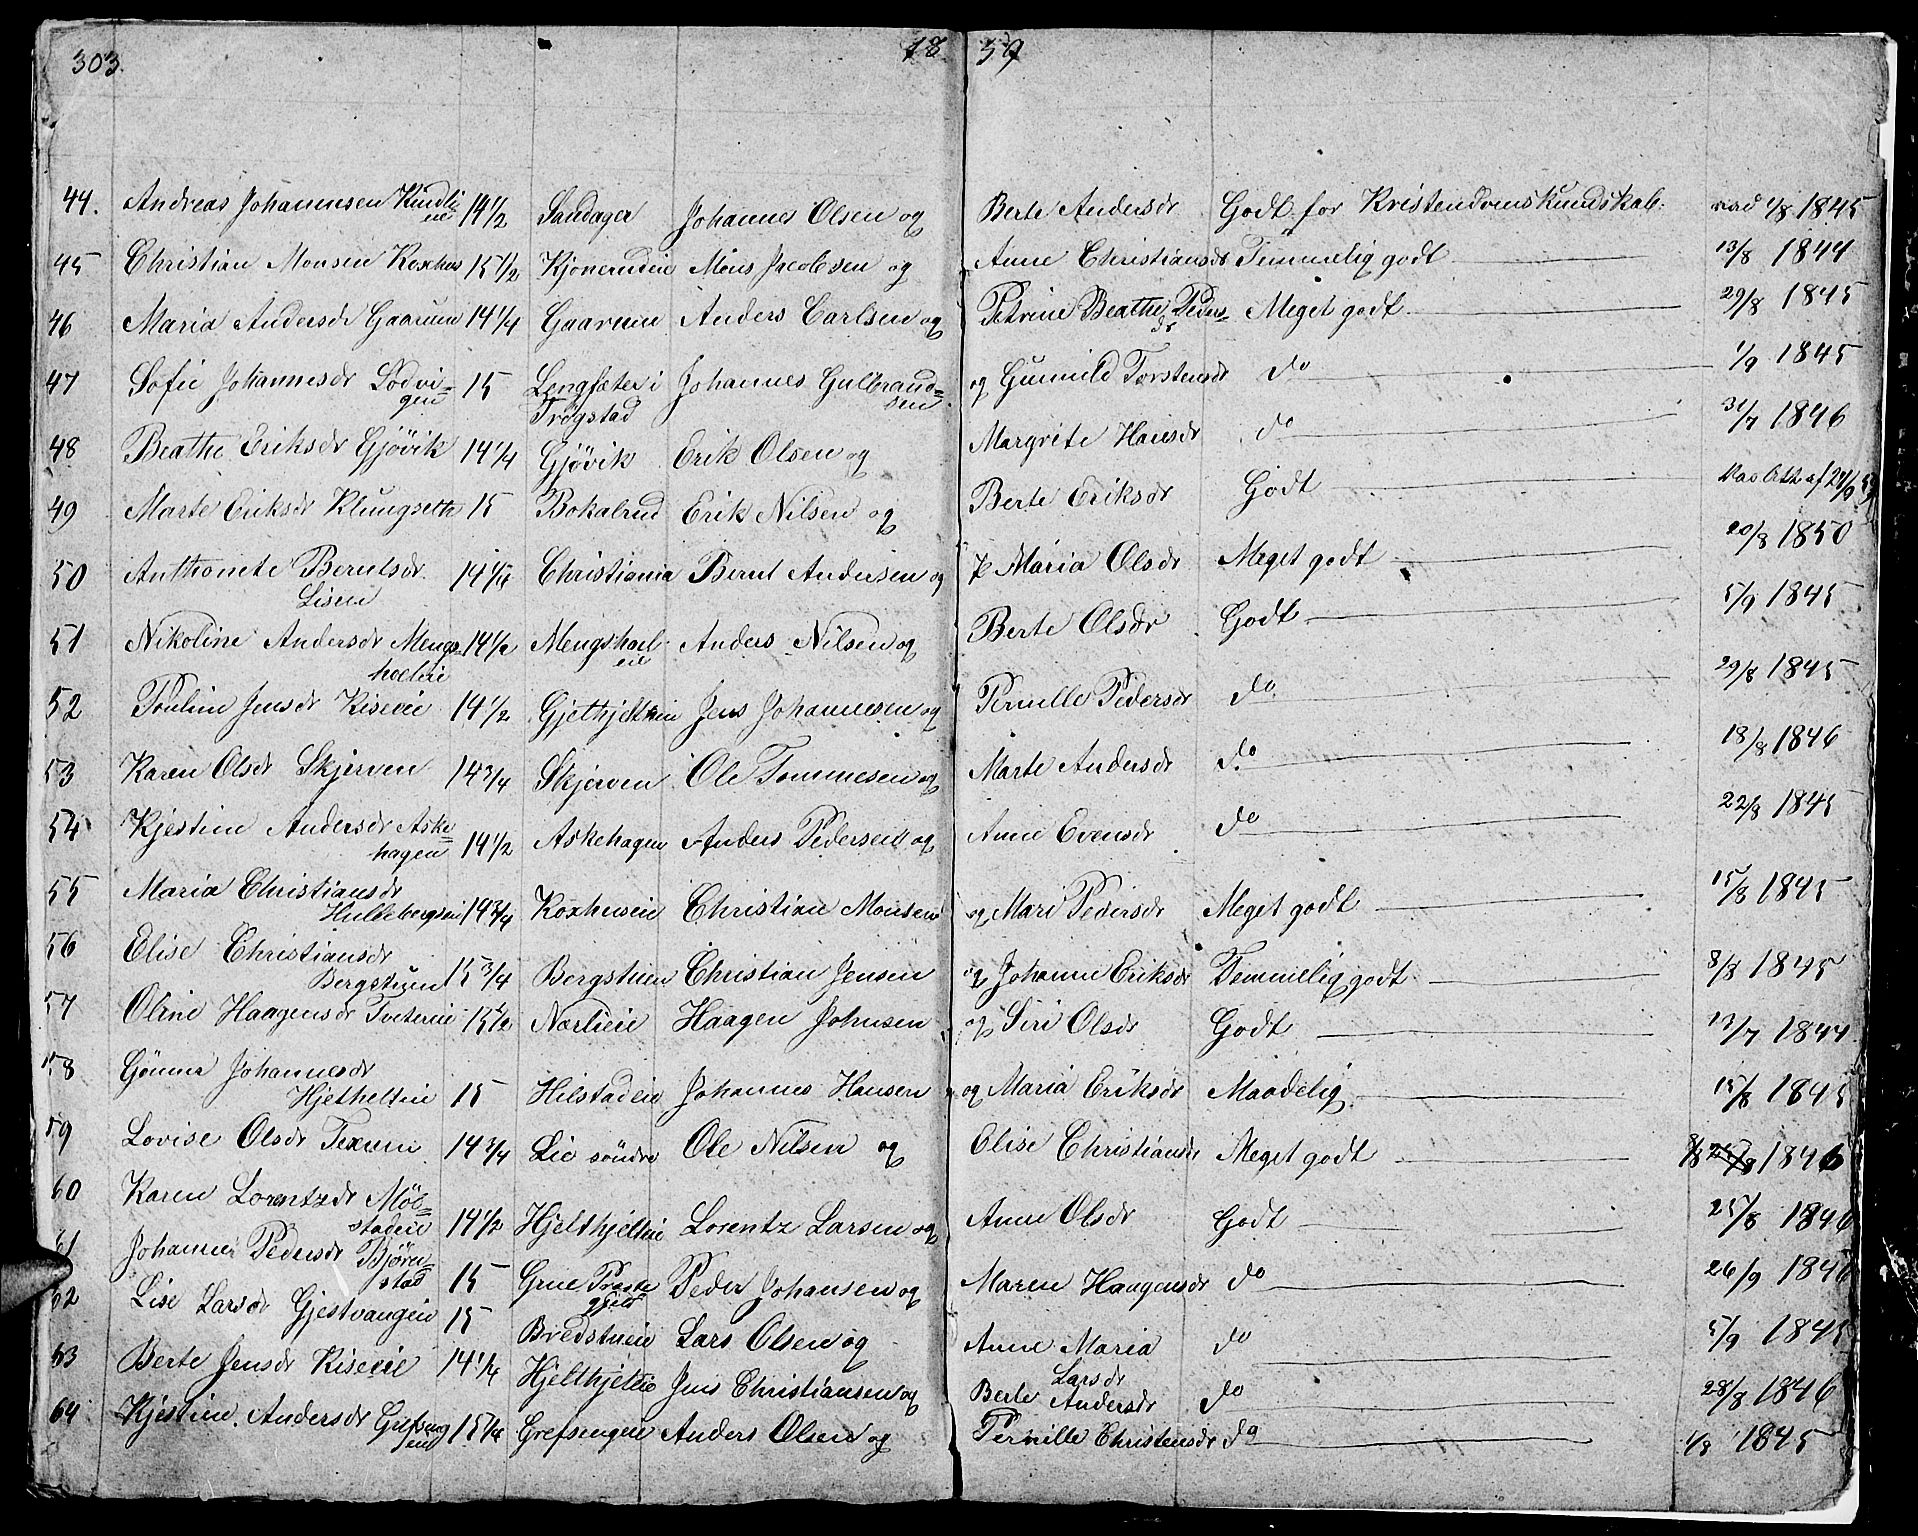 303. 18 59
44. Andreas Johannesen Kindli= 14 1/2 Sandager Johannes Olsen og Berte Andersdr Godt for Kristendomskundskab. vac 1/8 1845
eie
45 Christian Monsen Koxhus 15 1/2 Kjonerudeie Mons Jacobsen og Anne Christiansdr Temmelig godt 13/8 1844
46 Maria Andersdr Gaarum 14 1/4 Gaarum Anders Carlsen og Petrine Beathe Peders= Meget godt 29/8 1845
dr
47 Sofie Johannesdr Lodvi= 15 Lengsæter i Johannes Gulbrand= og Gunnild Torstensdr do 1/9 1845
gen Trøgstad sen
48 Beathe Eriksdr Gjøvik 14 1/4 Gjøvik Erik Olsen og Margrete Hansdr do 31/7 1846
49 Marte Eriksdr Klungseth 15 Bokalrud Erik Nilsen og Berte Eriksdr Godt Vac Att af 24/9 59
50 Anthonete Berntsdr 14 1/4 Christiania Bernt Andersen og P Maria Olsdr Meget godt 20/8 1850
Lisem
51 Nikoline Andersdr Mengs= 14 1/2 Mengshoel Anders Nilsen og Berte Olsdr Godt 5/9 1845
hoeleie eie
52 Pouline Jensdr Kiseeie 14 1/2 Gjethjelteie Jens Johannesen og Pernille Pedersdr do 29/8 1845
53 Karen Olsdr Skjerven 14 3/4 Skjerven Ole Tommesen og Marte Andersdr do 18/8 1846
54 Kjestine Andersdr Aske= 14 1/2 Askehagen Anders Pedersen og Anne Evensdr do 22/8 1845
hagen
55 Maria Christiansdr
Hullebergseie 14 3/4 Koxhuseie Christian Monsen og Mari Pedersdr Meget godt 15/8 1845
56 Elise Christiansdr
Bergstuen 15 3/4 Bergstuen Christian Jensen og Johanne Eriksdr Temmelig godt 8/8 1845
57 Oline Haagensdr Tvetereie 15 1/2 Nærlieie Haagen Johnsen og Siri Olsdr Godt 13/7 1844
58 Gønner Johannesdr
Hjethelteie 15 Hilstadeie Johannes Hansen og Maria Eriksdr Maadelig 15/8 1845
59 Lovise Olsdr Texum 14 3/4 Lie søndre Ole Nilsen og Elise Christiansdr Meget godt 8/8 1846
60 Karen Lorentzdr Møl=
stadeie 14 1/2 Hjelthjelteie Lorentz Larsen og Anne Olsdr Godt 25/8 1846
61 Johanne Pedersdr Bjørn=
stad 15 Grue Præste Peder Johansen og Maren Haagensdr do 26/9 1846
gjeld
62 Lise Larsdr Gjestvangen 15 Bredstueie Lars Olsen og Anne Maria do 5/9 1845
Larsdr
63 Berte Jensdr Kiseeie 14 1/4 Hjelthjelteie Jens Christiansen og Berte Andersdr do 28/8 1846
64 Kjestine Andersdr Grefseng 15 1/4 Grefsengeie Anders Olsen og Pernille Christensdr do 1/8 1845
eie